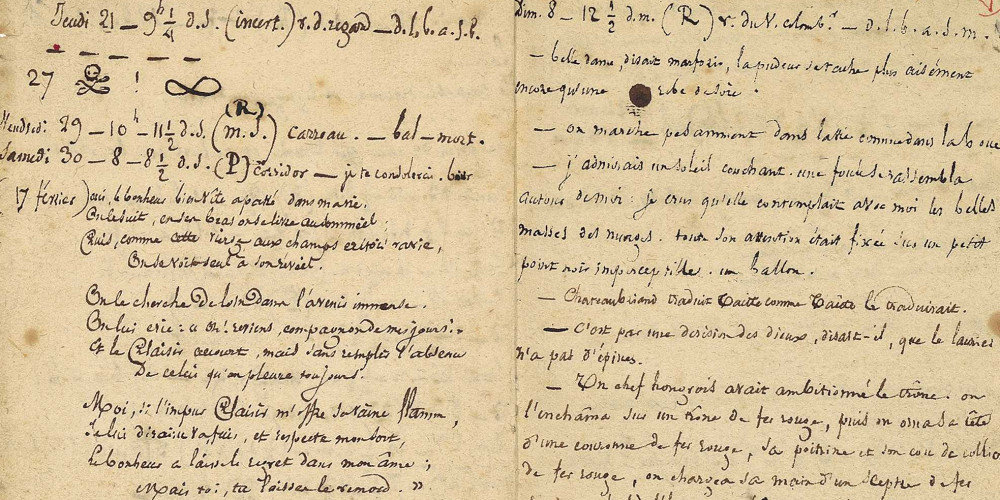 Jeudi 21 — 9 h 1/4 d.s. (incert.) r. d. regard — d. l. b. a. s. b.
— — — — —
27 ! ∞
(R)
Vendredi 29 — 10 h — 11 1/2 d.s. (m.s.) Carreau. — bal — mort.
Samedi 30 — 8 — 8 1/2 d.s. (P) Corridor — je te consolerai.
17 février) oui, le bonheur bien vite a passé dans ma vie.
On le suit, en ses bras on se livre au sommeil ;
Puis, comme cette vierge aux champs crétois ravie,
On se voit seul à son réveil.
On le cherche de loin dans l'avenir immense.
On lui crie : « oh ! reviens, compagnon de mes jours. »
Et le Plaisir accourt, mais sans remplir l'absence
De celui qu'on pleure toujours.
Moi, si l'impur Plaisir m'offre sa vaine flamme,
Je lui dirai : va, fuis, et respecte mon sort,
Le bonheur a laissé le regret dans mon âme ;
Mais toi, tu laisses le remord. »
Dim. 8 — 12 1/2 d.m. (R) r. du V. Colombr — d. l. b. a. s. m.
— belle dame, disait , la pudeur se cache plus aisément
encore qu'une robe de soie.
— on marche dans la vie comme dans la boue
— j'admirais un soleil couchant. une foule se rassembla
autour de moi : je crus qu'elle contemplait avec moi les belles
masses des nuages. toute son attention était fixée sur un petit
point noir imperceptible. un ballon.
— Chateaubriand traduit Tacite comme Tacite le traduirait.
— C'est par une dérision des dieux, disait-il, que le laurier
n'a pas d'épines.
— Un chef hongrois avait ambitionné le trône. on
l'enchaîna sur un trône de fer rouge, puis on orna sa tête
d'une couronne de fer rouge, sa poitrine et son cou de colliers
de fer rouge, on chargea sa main d'un sceptre de fer